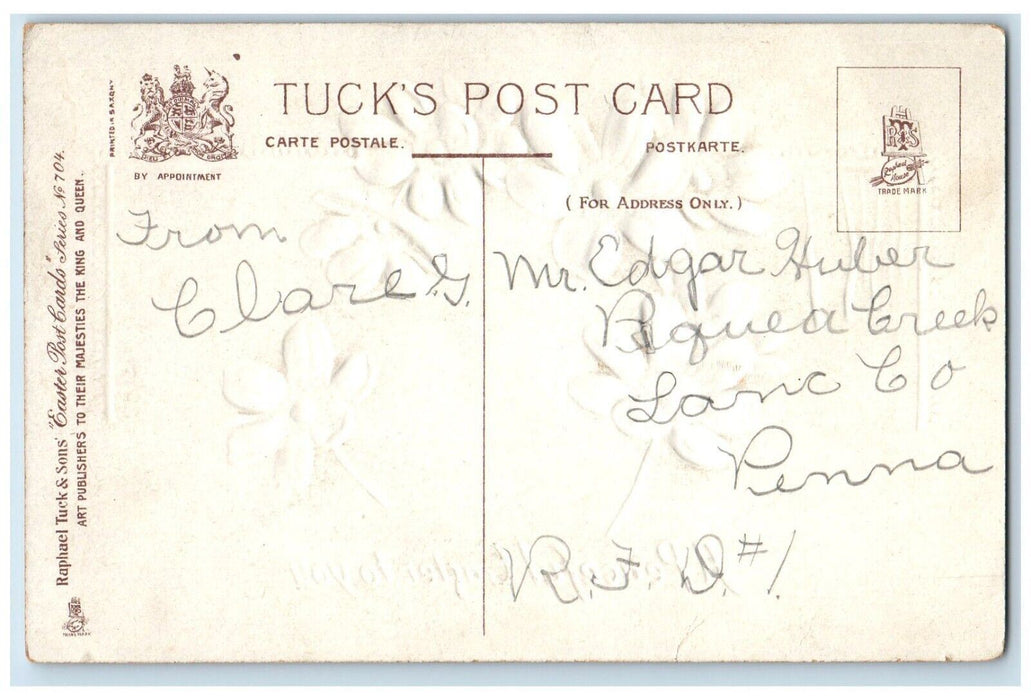 TUCK'S POST CARD
CARTE POSTALE.
POSTKARTE.
(FOR ADDRESS ONLY.)
BY APPOINTMENT
PRINTED IN SAXONY
RTS
Raphael House
TRADE MARK
From
Clare G.
Mr. Edgar Huber
Pequea Creek
Lanc Co
Penna
R.F.D. #1.
Raphael Tuck & Sons' "Easter Post Cards" Series No 704.
ART PUBLISHERS TO THEIR MAJESTIES THE KING AND QUEEN.
TRADE MARK